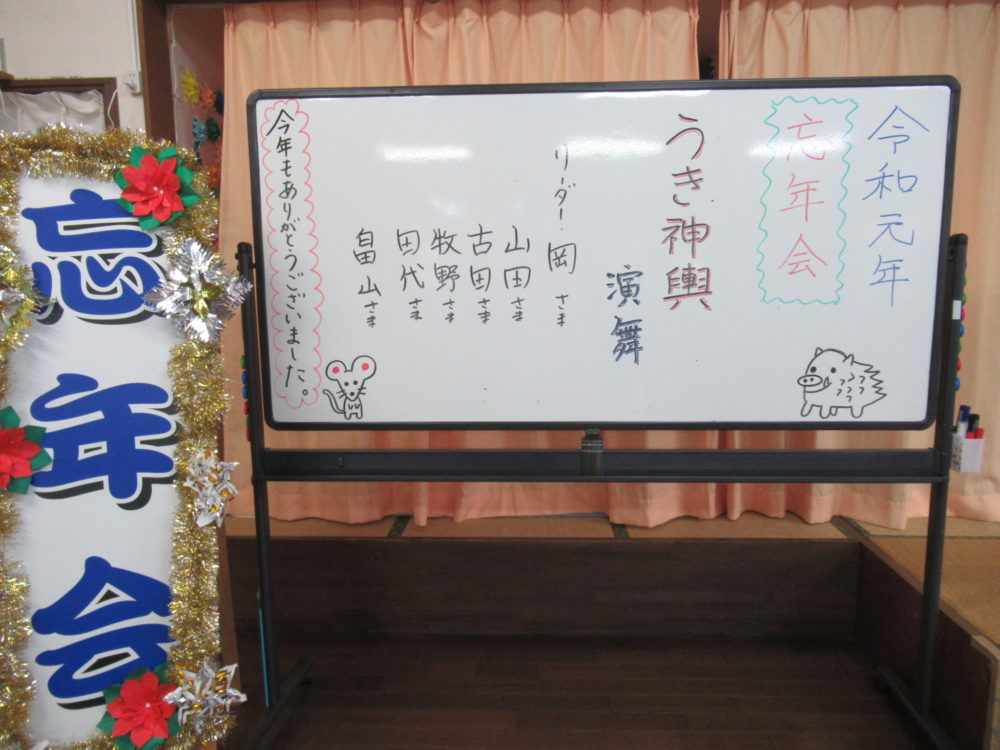 令和元年
忘年会
うき神輿
演舞
リーダー・岡さま
山田さま
古田さま
牧野さま
田代さま
畠山さま
今年もありがとうございました。
忘年会